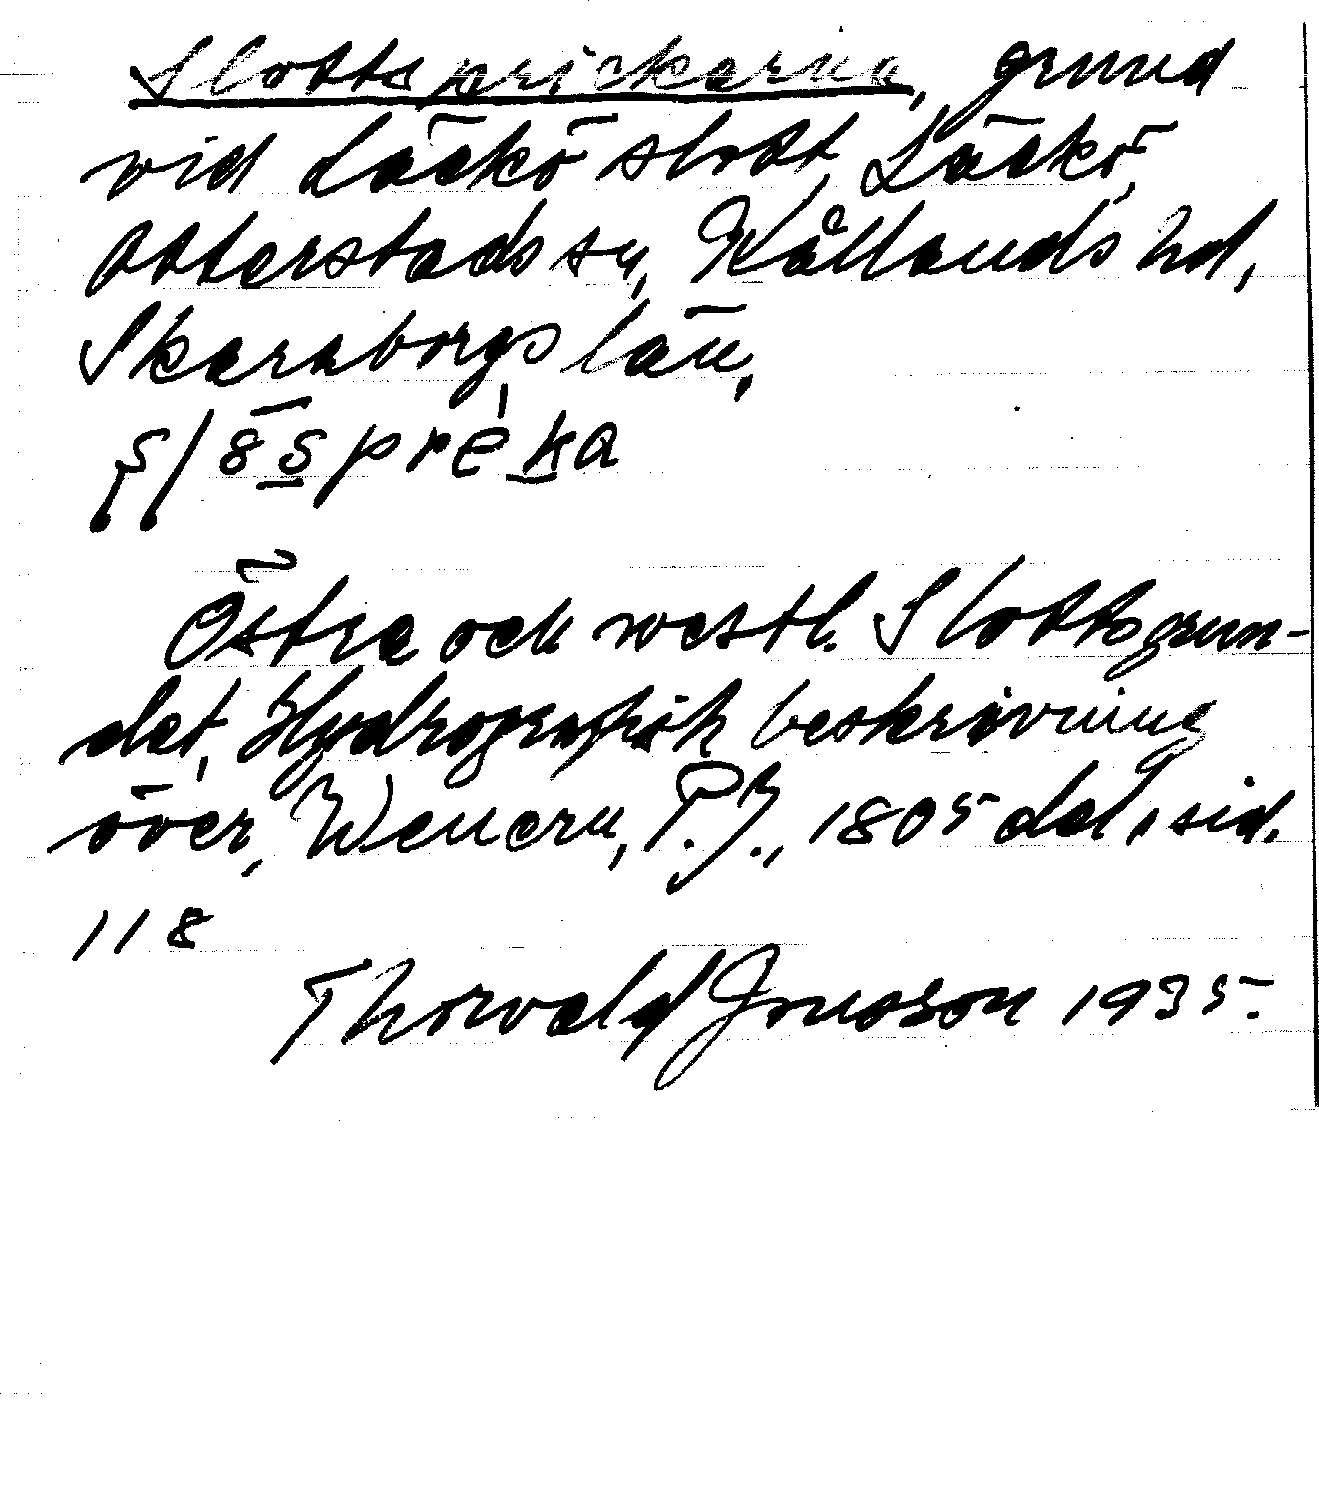 Slottsprickarna, grund
vid Läckö slott, Läckö,
Otterstads sn, Kållands hd,
Skaraborgs län.
Östra och westl. Slottsgrun-
det, Hydrografisk beskrivning
över, Wenern, P. J., 1805 del, sid.
118
Thorvald Jonsson 1935.